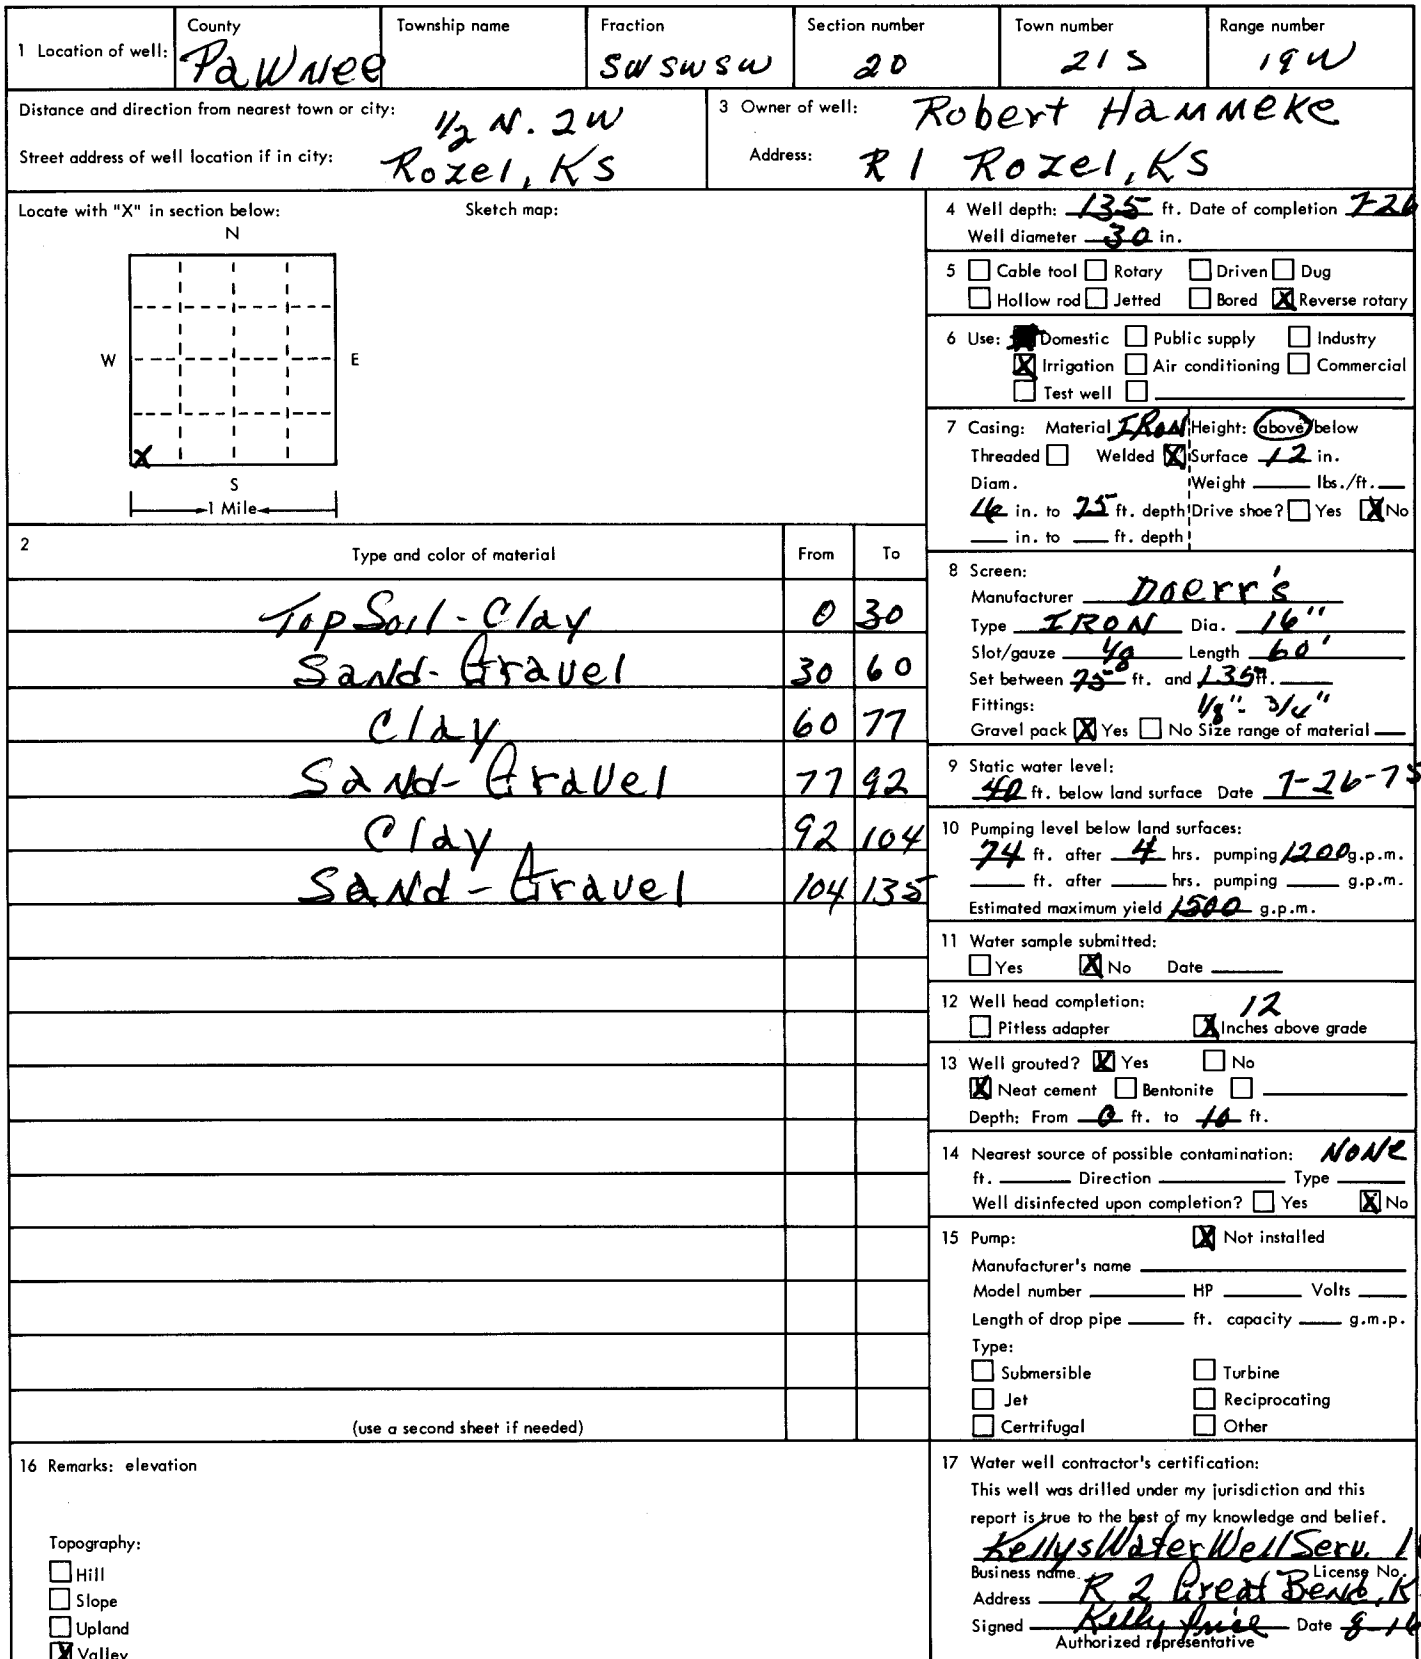 County Township name Fraction Section number Town number Range number
1 Location of well: Pawnee SW SW SW 20 21 S 19 W
Distance and direction from nearest town or city: 1/2 N. 2W
Street address of well location if in city: Rozel, KS
3 Owner of well: Robert Hammeke
Address: R 1 Rozel, KS
Locate with "X" in section below: Sketch map:
N
W E
X
S
1 Mile
2 Type and color of material From To
Top Soil - Clay 0 30
Sand - Gravel 30 60
Clay 60 77
Sand - Gravel 77 92
Clay 92 104
Sand - Gravel 104 135
(use a second sheet if needed)
4 Well depth: 135 ft. Date of completion 7-26
Well diameter 30 in.
5 Cable tool Rotary Driven Dug
Hollow rod Jetted Bored X Reverse rotary
6 Use: Domestic Public supply Industry
X Irrigation Air conditioning Commercial
Test well
7 Casing: Material IRON Height: above/below
Threaded Welded X Surface 12 in.
Diam. Weight lbs./ft.
16 in. to 75 ft. depth Drive shoe? Yes X No
in. to ft. depth
8 Screen:
Manufacturer Doerr's
Type IRON Dia. 16"
Slot/gauze 1/8 Length 60'
Set between 75 ft. and 135 ft.
Fittings: 1/8" - 3/4"
Gravel pack X Yes No Size range of material
9 Static water level:
40 ft. below land surface Date 7-26-75
10 Pumping level below land surfaces:
74 ft. after 4 hrs. pumping 1200 g.p.m.
ft. after hrs. pumping g.p.m.
Estimated maximum yield 1500 g.p.m.
11 Water sample submitted:
Yes X No Date
12 Well head completion: 12
Pitless adapter X Inches above grade
13 Well grouted? X Yes No
X Neat cement Bentonite
Depth: From 0 ft. to 10 ft.
14 Nearest source of possible contamination: NONE
ft. Direction Type
Well disinfected upon completion? Yes X No
15 Pump: X Not installed
Manufacturer's name
Model number HP Volts
Length of drop pipe ft. capacity g.m.p.
Type:
Submersible Turbine
Jet Reciprocating
Certrifugal Other
16 Remarks: elevation
Topography:
Hill
Slope
Upland
X Valley
17 Water well contractor's certification:
This well was drilled under my jurisdiction and this
report is true to the best of my knowledge and belief.
Kellys Water Well Serv.
Business name License No.
Address R 2 Great Bend, K
Signed Kelly Price Date 8-16
Authorized representative